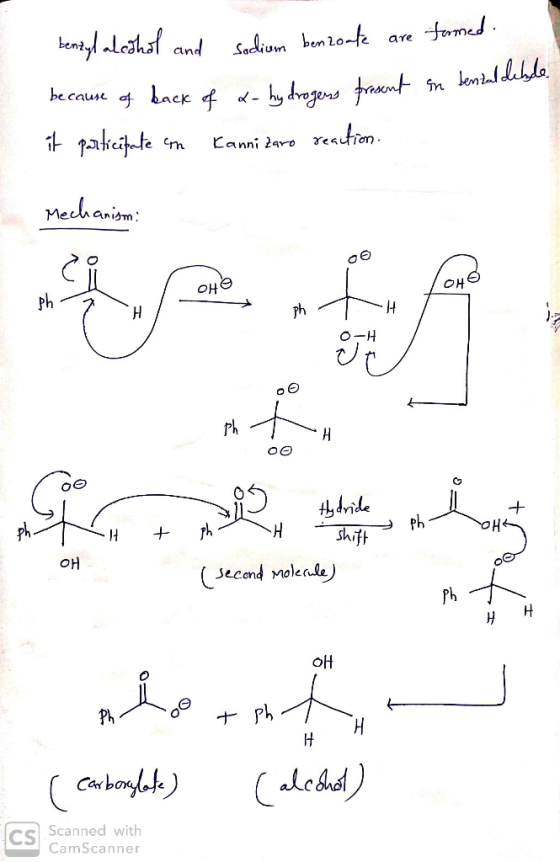 benzyl alcohol and sodium benzoate are formed.
because of Lack of α-hydrogens present in benzaldehyde
it participate in Kannizaro reaction.
Mechanism:
O
Ph H
OH⊖
O⊖
Ph H
O-H
OH⊖
O⊖
Ph H
O⊖
O⊖
Ph H
OH
+
O
Ph H
(second molecule)
Hydride
shift
O
Ph OH
+
O⊖
Ph H
H
O
Ph O⊖
+
OH
Ph H
H
(carboxylate) (alcohol)
CS Scanned with
CamScanner